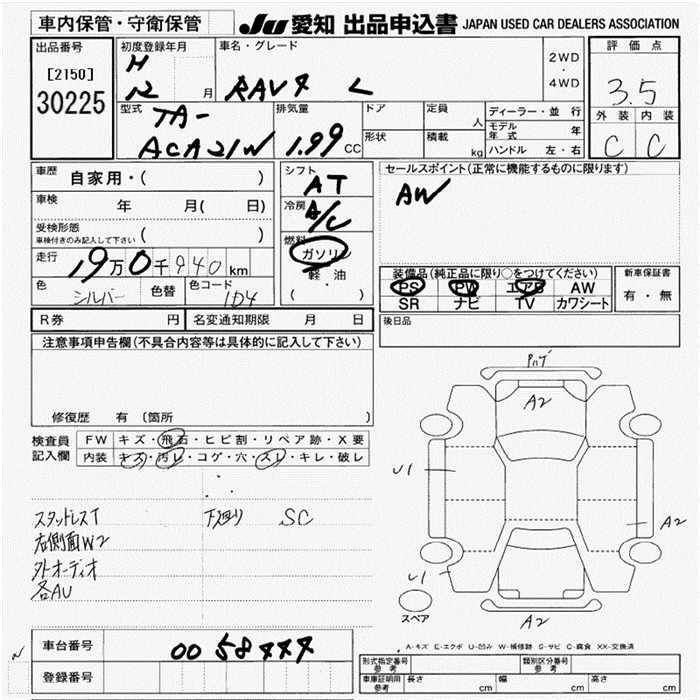 車内保管・守衛保管
JU 愛知 出品申込書 JAPAN USED CAR DEALERS ASSOCIATION
出品番号
[2150]
30225
初度登録年月
H
12 月
車名・グレード
RAV4 L
2WD
・
4WD
評価点
3.5
外装 内装
C C
型式
TA-
ACA21W
排気量
1.99 CC
ドア
定員 人
形状
積載 kg
ディーラー・並行
モデル年式 年
ハンドル 左・右
車歴 自家用・( )
車検 年 月( 日)
受検形態
車検付きのみ記入して下さい ( )
走行 19万0千940km
色 シルバー 色替 色コード 1D4
シフト
AT
冷房
A/C
燃料
ガソリン
軽油
( ・ )
セールスポイント(正常に機能するものに限ります)
AW
装備品(純正品に限り○をつけてください)
PS PW エアB AW
SR ナビ TV カワシート
新車保証書
有・無
R券 円 名変通知期限 月 日
後日品
注意事項申告欄(不具合内容等は具体的に記入して下さい)
修復歴 有 〔箇所 〕
検査員
記入欄
FW キズ・飛石・ヒビ割・リペア跡・X要
内装 キズ・汚レ・コゲ・穴・スレ・キレ・破レ
スタッドレスT 下廻り SC
右側面W2
外オーディオ
各AU
ハガ
A2
U1
A2
U1
A2
スペア
A-キズ E-エクボ U-凹み W-補修跡 S-サビ C-腐食 XX-交換済
車台番号 0058444
登録番号
N
形式指定番号
参考
類別区分番号
参考
車庫証明用
参考
長さ cm 幅 cm 高さ cm